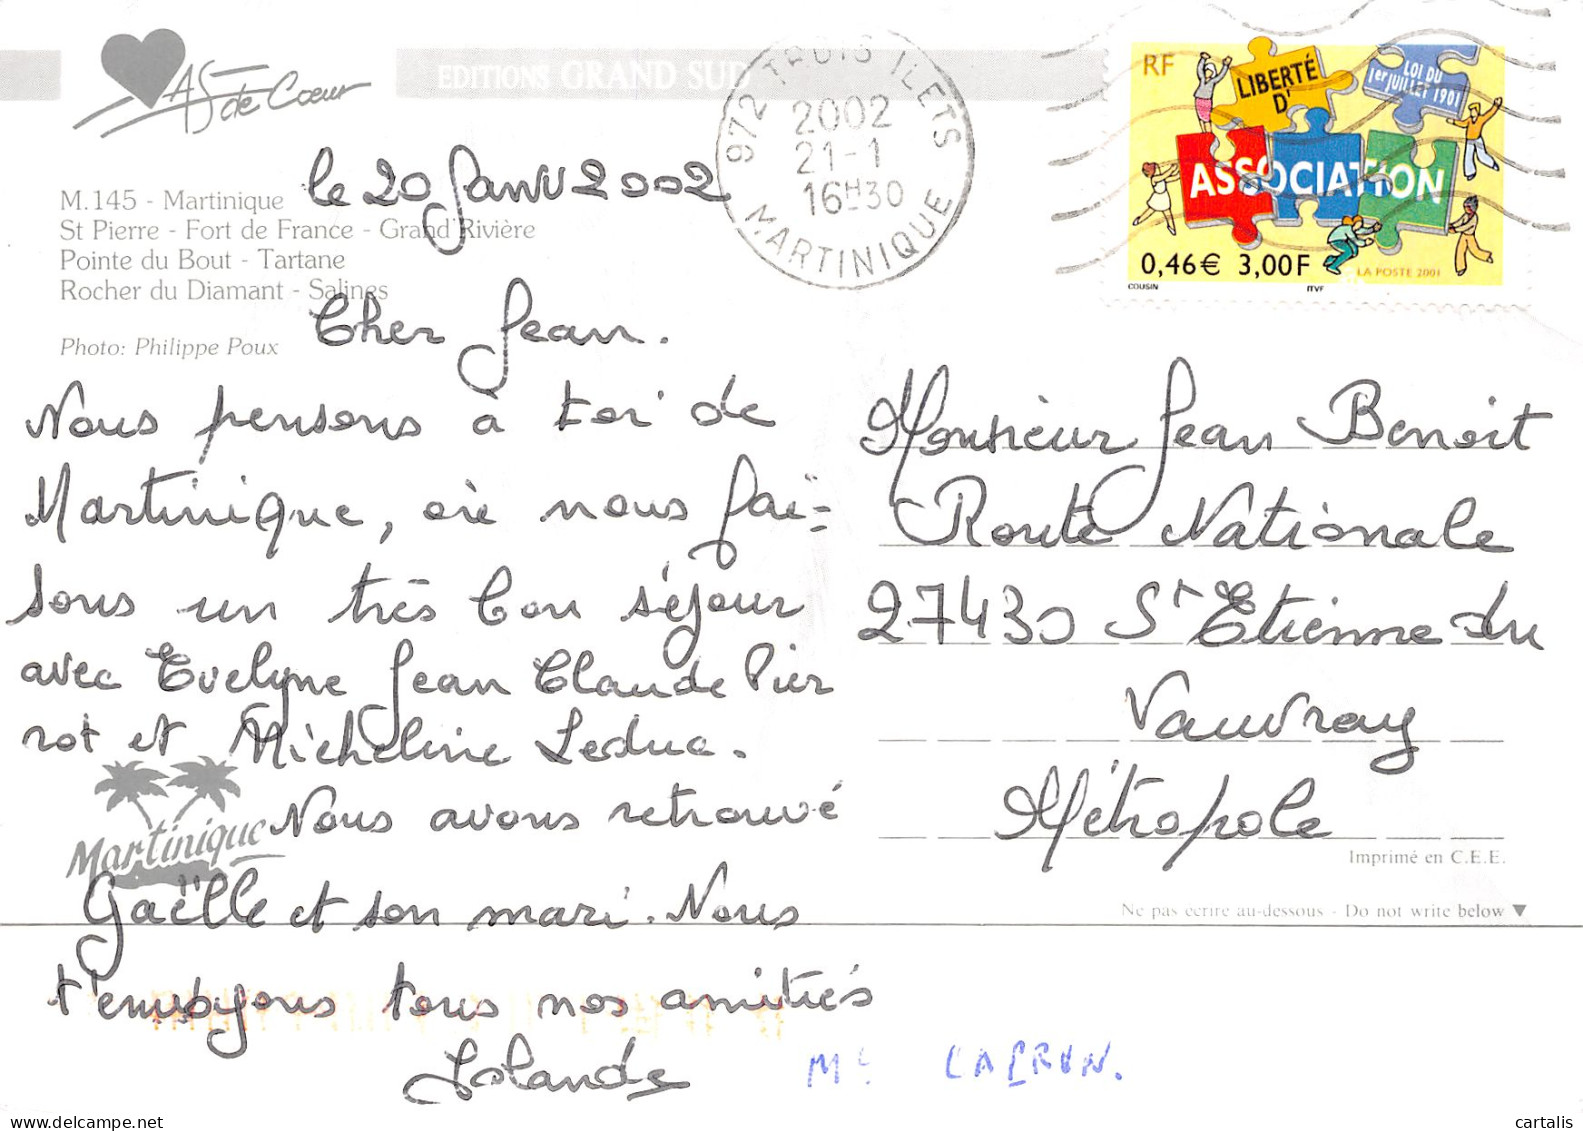 AS de Coeur
EDITIONS GRAND SUD
972 TROIS ILETS
2002
21-1
16H30
MARTINIQUE
RF
LIBERTÉ
D'
LOI DU
1er JUILLET 1901
ASSOCIATION
0,46€ 3,00F
LA POSTE 2001
COUSIN
ITVF
le 20 Janv 2002
M.145 - Martinique
St Pierre - Fort de France - Grand'Rivière
Pointe du Bout - Tartane
Rocher du Diamant - Salines
Photo: Philippe Poux
Cher Jean.
Nous pensons à toi de
Martinique, où nous fai-
sons un très bon séjour
avec Evelyne Jean Claude Pier
rot et Micheline Leduc.
Nous avons retrouvé
Gaëlle et son mari. Nous
t'envoyons tous nos amitiés
Iolande
Martinique
Monsieur Jean Benoit
Route Nationale
27430 St Etienne du
Vauvray
Métropole
Imprimé en C.E.E.
Ne pas écrire au-dessous - Do not write below ▼
www.delcampe.net
cartalis